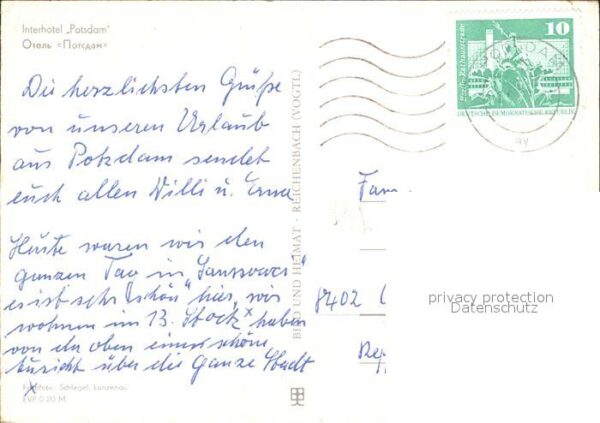 Interhotel „Potsdam"
Отель «Потсдам»
Die herzlichsten Grüße
von unseren Urlaub
aus Potzdam sendet
euch allen Willi u. Erna
Heute waren wir den
ganzen Tag in „Sanssouci"
es ist sehr schön hier, wir
wohnen im 13. Stock x haben
von da oben eine schöne
Aussicht über die ganze Stadt
x
Schlegel, Lunzenau
EVP 0,20 M
BILD UND HEIMAT · REICHENBACH (VOGTL)
10
DEUTSCHE DEMOKRATISCHE REPUBLIK
POTSDAM
Fam
8402
privacy protection
Datenschutz